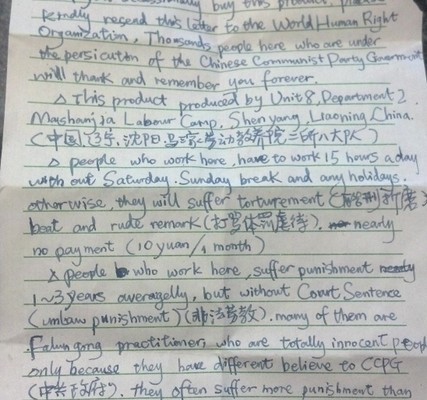 buy this product, please
kindly resend this letter to the World Human Right
Organization. Thousands people here who are under
the persicution of the Chinese Communist Party Government
will thank and remember you forever.
△ This product produced by Unit 8, Department 2,
Mashanjia Labour Camp, Shenyang, Liaoning, China.
(中国,辽宁,沈阳,马三家劳动教养院二所八大队)
△ people who work here, have to work 15 hours a day
with out Saturday, Sunday break and any holidays.
otherwise, they will suffer torturement (酷刑折磨)
beat and rude remark (打骂体罚虐待). nearly
no payment (10 yuan/1 month)
△ people who work here, suffer punishment
1~3 years averagelly, but without Court Sentence
(unlaw punishment) (非法劳教). many of them are
Falun gong practitioner, who are totally innocent people
only because they have different believe to CCPG
(中共政府). they often suffer more punishment than